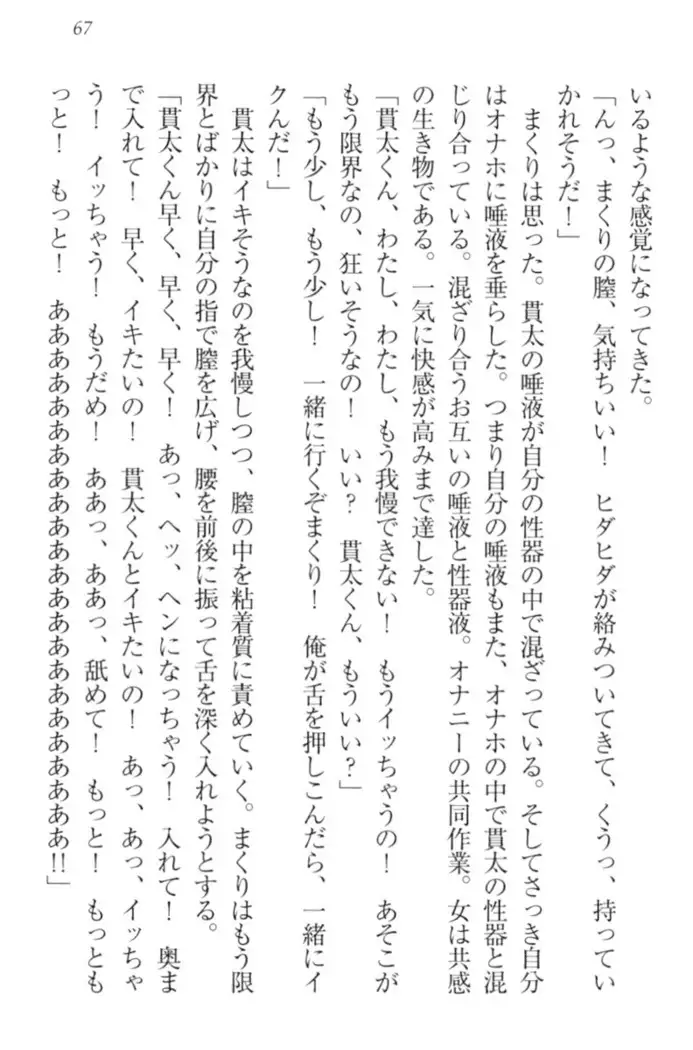 67
いるような感覚になってきた。
「んっ、まくりの膣、気持ちいい！　ヒダヒダが絡みついてきて、くうっ、持ってい
かれそうだ！」
　まくりは思った。貫太の唾液が自分の性器の中で混ざっている。そしてさっき自分
はオナホに唾液を垂らした。つまり自分の唾液もまた、オナホの中で貫太の性器と混
じり合っている。混ざり合うお互いの唾液と性器液。オナニーの共同作業。女は共感
の生き物である。一気に快感が高みまで達した。
「貫太くん、わたし、わたし、もう我慢できない！　もうイッちゃうの！　あそこが
もう限界なの、狂いそうなの！　いい？　貫太くん、もういい？」
「もう少し、もう少し！　一緒に行くぞまくり！　俺が舌を押しこんだら、一緒にイ
クんだ！」
　貫太はイキそうなのを我慢しつつ、膣の中を粘着質に責めていく。まくりはもう限
界とばかりに自分の指で膣を広げ、腰を前後に振って舌を深く入れようとする。
「貫太くん早く、早く、早く！　あっ、ヘッ、ヘンになっちゃう！　入れて！　奥ま
で入れて！　早く、イキたいの！　貫太くんとイキたいの！　あっ、あっ、イッちゃ
う！　イッちゃう！　もうだめ！　ああっ、ああっ、舐めて！　もっと！　もっとも
っと！　もっと！　ああああああああああああああああああああああああ!!」